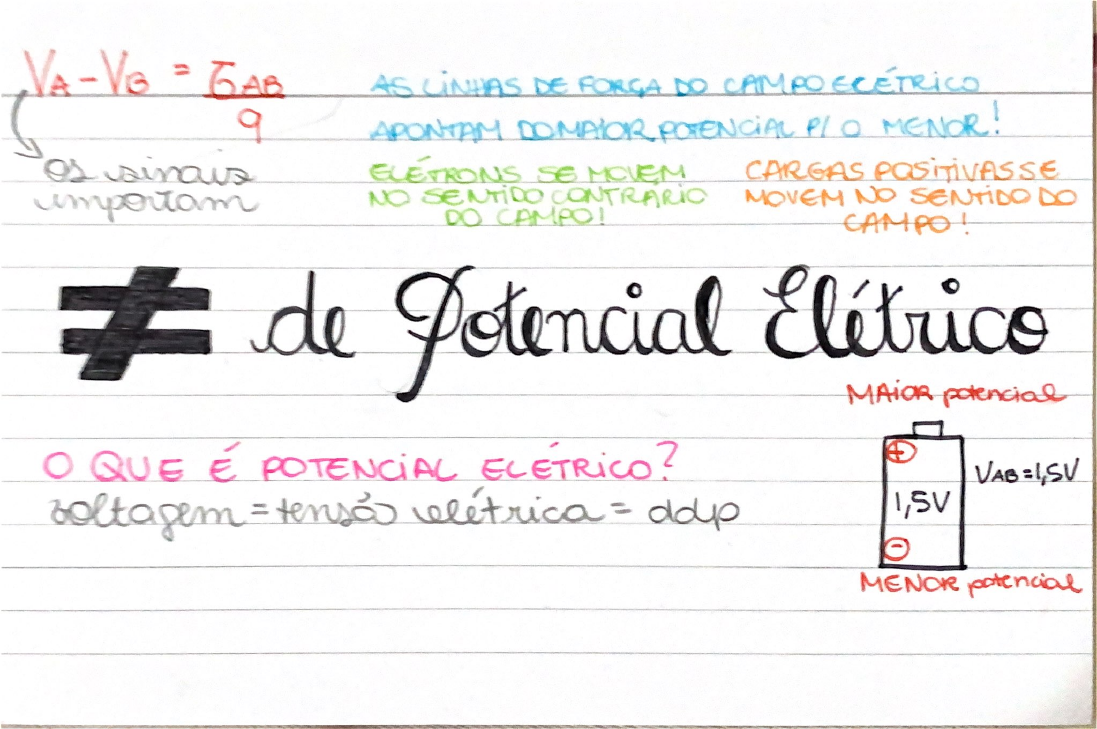 VA - VB = ζAB
q
os sinais
importam
AS LINHAS DE FORÇA DO CAMPO ELÉTRICO
APONTAM DO MAIOR POTENCIAL P/ O MENOR!
ELÉTRONS SE MOVEM
NO SENTIDO CONTRÁRIO
DO CAMPO!
CARGAS POSITIVAS SE
MOVEM NO SENTIDO DO
CAMPO!
≠ de Potencial Elétrico
MAIOR potencial
O QUE É POTENCIAL ELÉTRICO?
voltagem = tensão elétrica = ddp
+
VAB=1,5V
1,5V
-
MENOR potencial